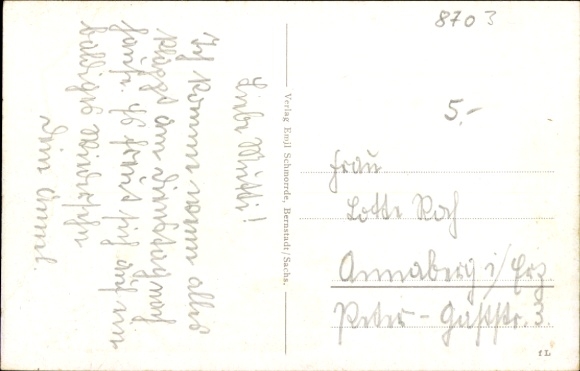 8703
5,-
Liebe Mutti!
Ich komme wenn alles
klappt am Dienstag nach
Hause. Es freut sich auf ein
baldiges Wiedersehn
Dein
Verlag Emil Schmorrde, Bernstadt/Sachs.
Frau
Lotte
Annaberg i/Erz
Peter-Gaststr. 3.
fL